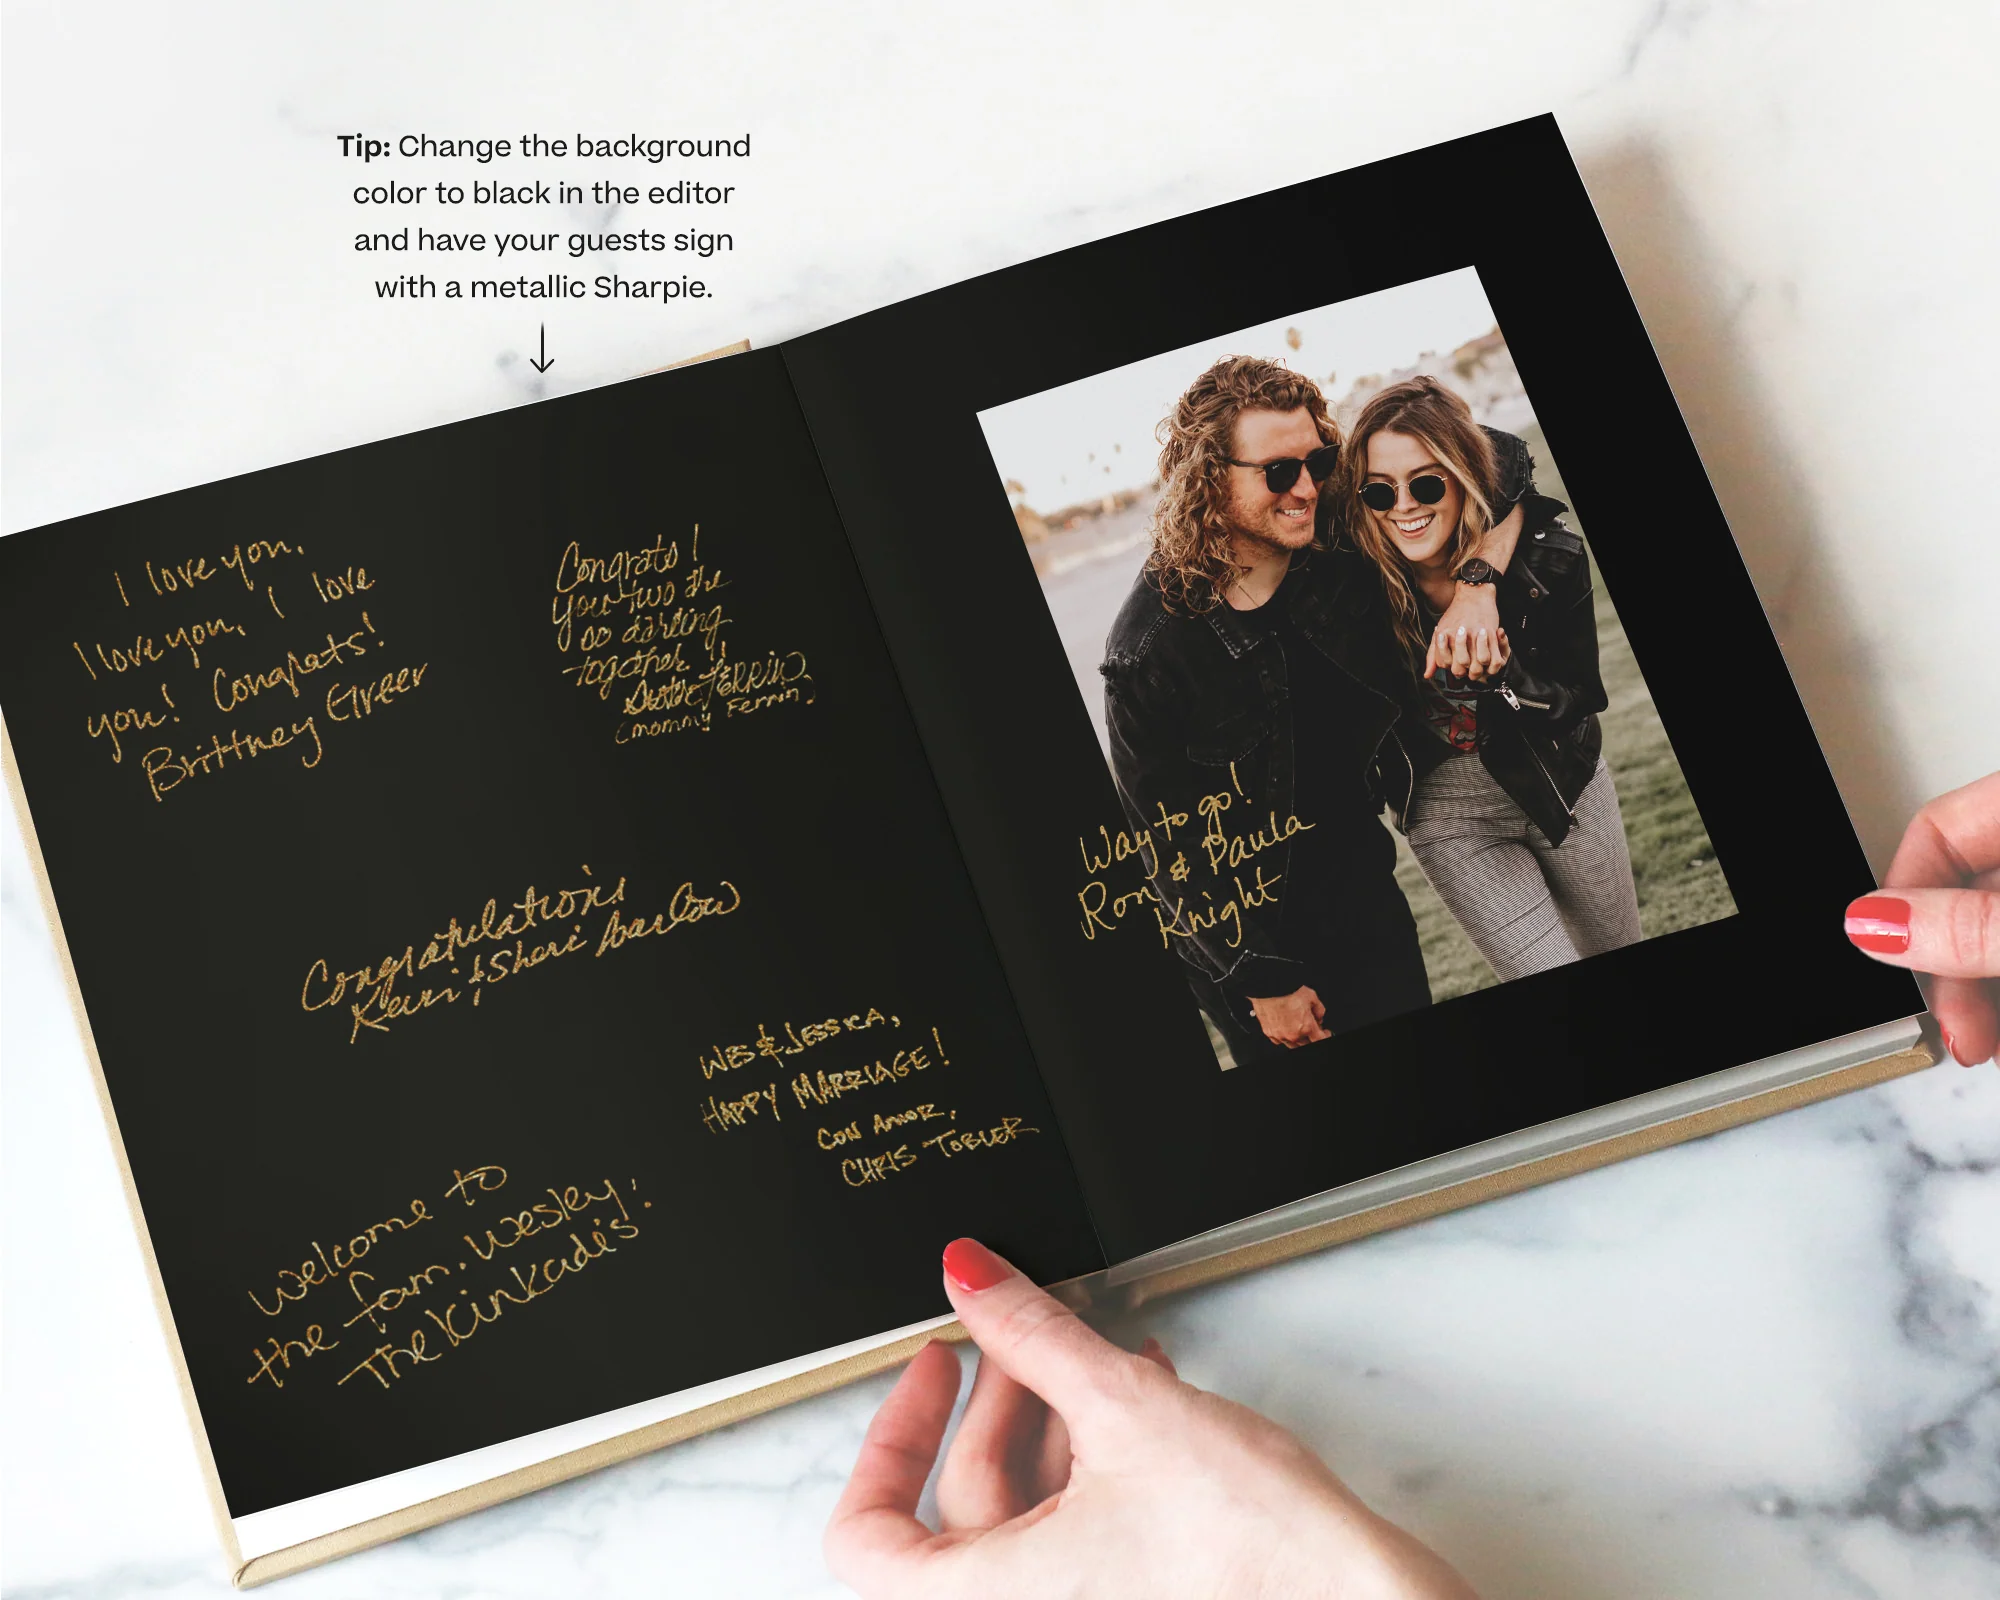 Tip: Change the background
color to black in the editor
and have your guests sign
with a metallic Sharpie.
I love you,
I love you, I love
you! Congrats!
Brittney Greer
Congrats!
You two are
so darling
together.
(mommy Ferrin)
Congratulations
Kevin & Sheri Barlow
WES & JESSICA,
HAPPY MARRIAGE!
CON AMOR,
CHRIS TOBLER
Welcome to
the fam. Wesley!
The Kinkadis
Way to go!
Ron & Paula
Knight